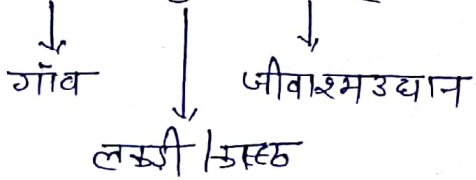 गाँव जीवाश्म उद्यान
लकड़ी / काष्ठ